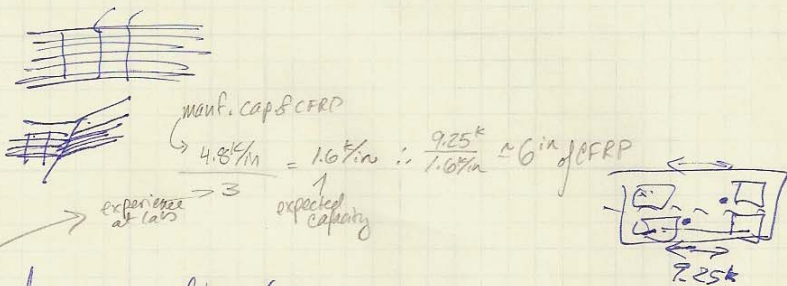 manf. cap of CFRP
4.8 k/in / 3 = 1.6 k/in ∴ 9.25k / 1.6 k/in ≈ 6 in of CFRP
experience at labs
expected capacity
9.25k